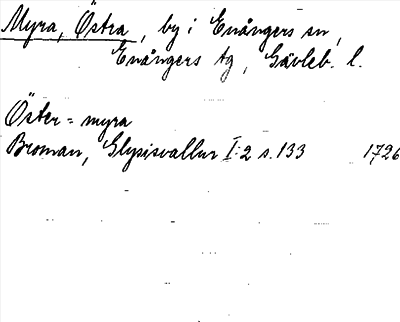 Myra, Östra, by i Enångers sn,
Enångers tg, Gävleb. l.
Öster-myra
Broman, Glysisvallur I:2 s. 133 1726